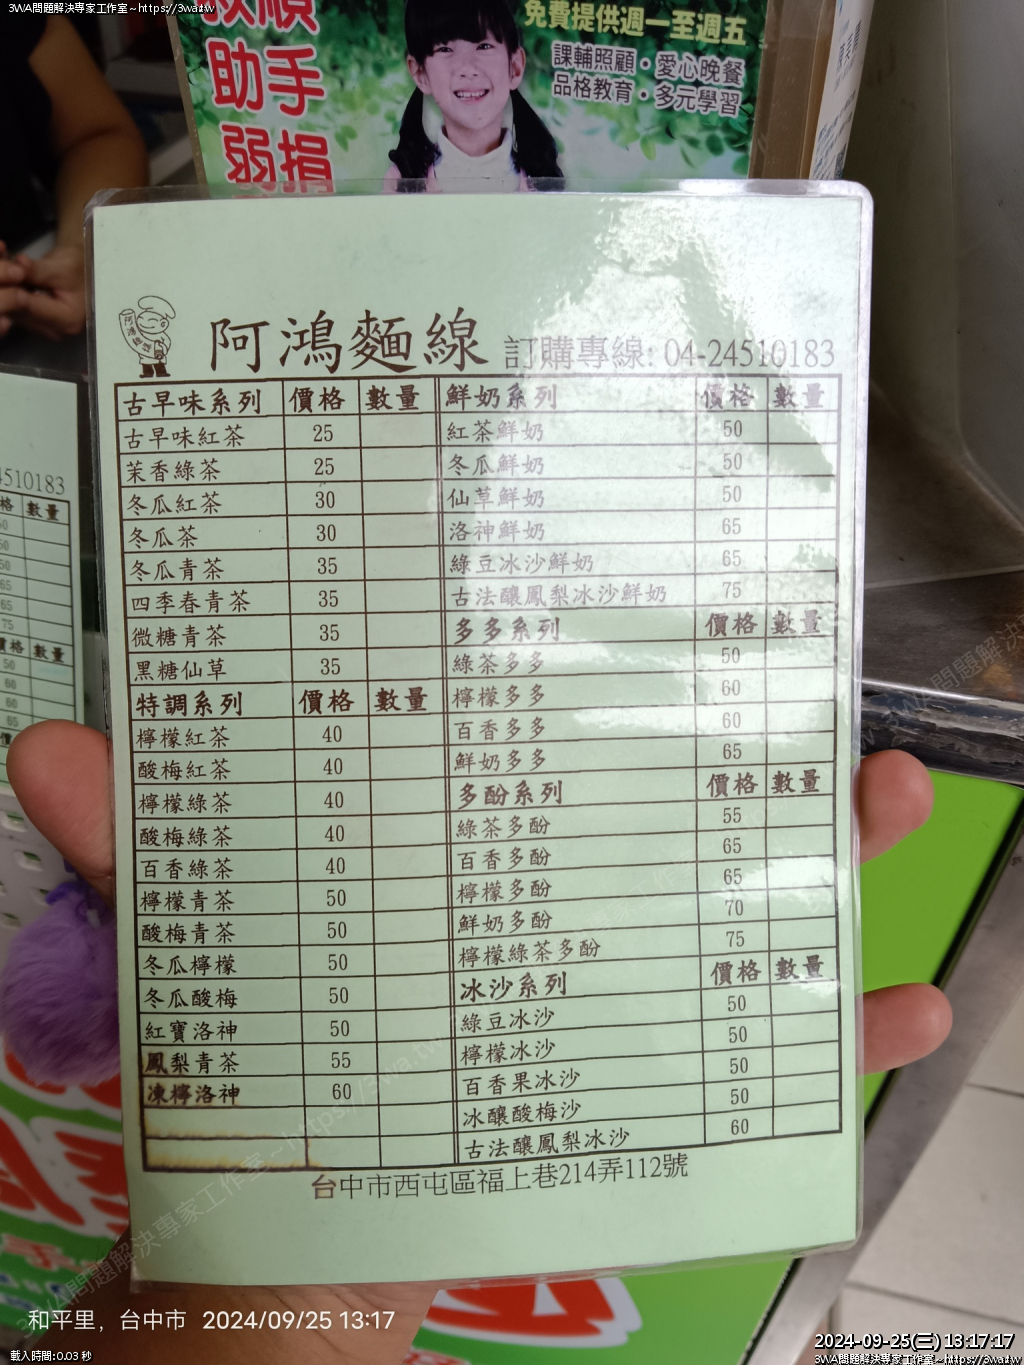 3WA問題解決專家工作室~https://3wa.tw
3WA問題解決專家工作室~https://3wa.tw
助手
弱捐
免費提供週一至週五
課輔照顧・愛心晚餐
品格教育・多元學習
阿鴻麵線 訂購專線: 04-24510183
古早味系列 價格 數量
古早味紅茶 25
茉香綠茶 25
冬瓜紅茶 30
冬瓜茶 30
冬瓜青茶 35
四季春青茶 35
微糖青茶 35
黑糖仙草 35
特調系列 價格 數量
檸檬紅茶 40
酸梅紅茶 40
檸檬綠茶 40
酸梅綠茶 40
百香綠茶 40
檸檬青茶 50
酸梅青茶 50
冬瓜檸檬 50
冬瓜酸梅 50
紅寶洛神 50
鳳梨青茶 55
凍檸洛神 60
鮮奶系列 價格 數量
紅茶鮮奶 50
冬瓜鮮奶 50
仙草鮮奶 50
洛神鮮奶 65
綠豆冰沙鮮奶 65
古法釀鳳梨冰沙鮮奶 75
多多系列 價格 數量
綠茶多多 50
檸檬多多 60
百香多多 60
鮮奶多多 65
多酚系列 價格 數量
綠茶多酚 55
百香多酚 65
檸檬多酚 65
鮮奶多酚 70
檸檬綠茶多酚 75
冰沙系列 價格 數量
綠豆冰沙 50
檸檬冰沙 50
百香果冰沙 50
冰釀酸梅沙 50
古法釀鳳梨冰沙 60
台中市西屯區福上巷214弄112號
4510183
格 數量
50
65
65
75
價格 數量
50
60
60
65
和平里，台中市 2024/09/25 13:17
2024-09-25(三) 13:17:17
載入時間:0.03 秒
3WA問題解決專家工作室~https://3wa.tw